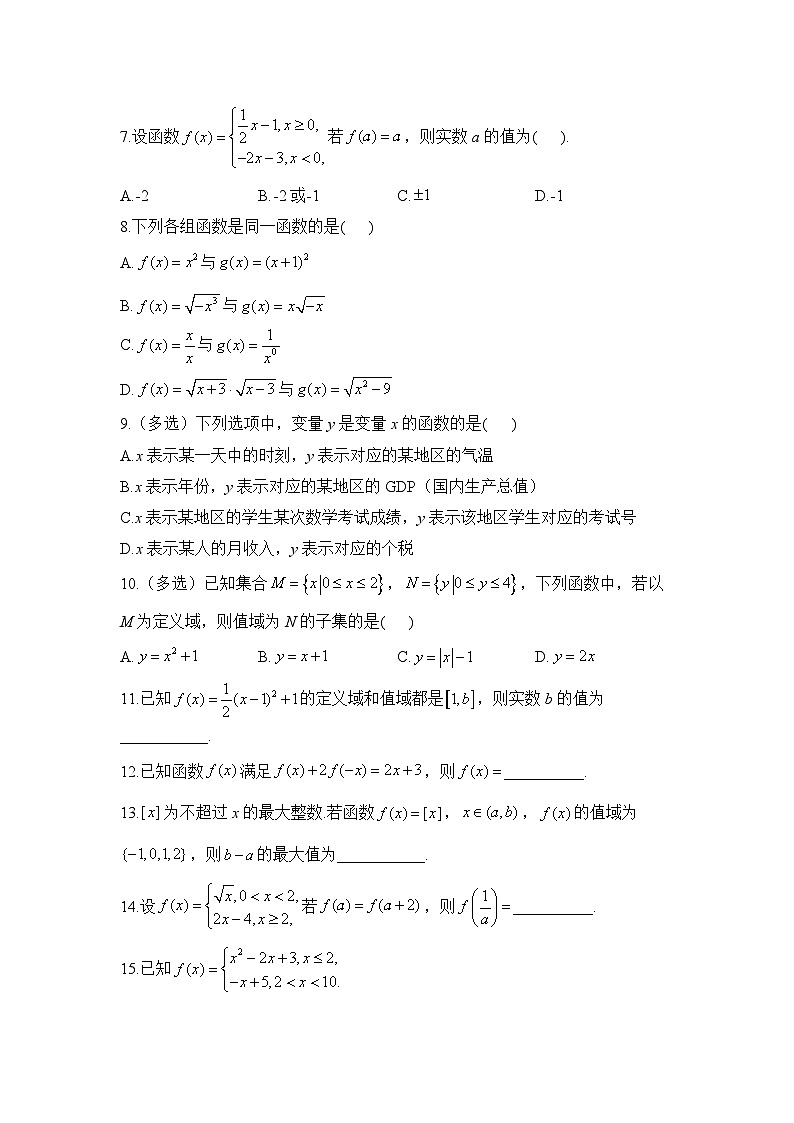 7.设函数 f(x)={1/2 x−1, x≥0, −2x−3, x<0, 若 f(a)=a，则实数 a 的值为(   ).
A.-2 B.-2或-1 C.±1 D.-1
8.下列各组函数是同一函数的是(   )
A. f(x)=x²与 g(x)=(x+1)²
B. f(x)=√(−x³) 与 g(x)=x√(−x)
C. f(x)=x/x与 g(x)=1/x⁰
D. f(x)=√(x+3)·√(x−3) 与 g(x)=√(x²−9)
9.（多选）下列选项中，变量 y 是变量 x 的函数的是(   )
A.x 表示某一天中的时刻，y 表示对应的某地区的气温
B.x 表示年份，y 表示对应的某地区的 GDP（国内生产总值）
C.x 表示某地区的学生某次数学考试成绩，y 表示该地区学生对应的考试号
D.x 表示某人的月收入，y 表示对应的个税
10.（多选）已知集合 M={x|0≤x≤2}，N={y|0≤y≤4}，下列函数中，若以
M 为定义域，则值域为 N 的子集的是(   )
A. y=x²+1 B. y=x+1 C. y=|x|−1 D. y=2x
11.已知 f(x)=1/2(x−1)²+1的定义域和值域都是[1,b]，则实数 b 的值为
___________.
12.已知函数 f(x)满足 f(x)+2f(−x)=2x+3，则 f(x)=__________.
13.[x]为不超过 x 的最大整数.若函数 f(x)=[x]，x∈(a,b)，f(x)的值域为
{−1,0,1,2}，则 b−a 的最大值为___________.
14.设 f(x)={√x, 0<x<2, 2x−4, x≥2, 若 f(a)=f(a+2)，则 f(1/a)=__________.
15.已知 f(x)={x²−2x+3, x≤2, −x+5, 2<x<10.